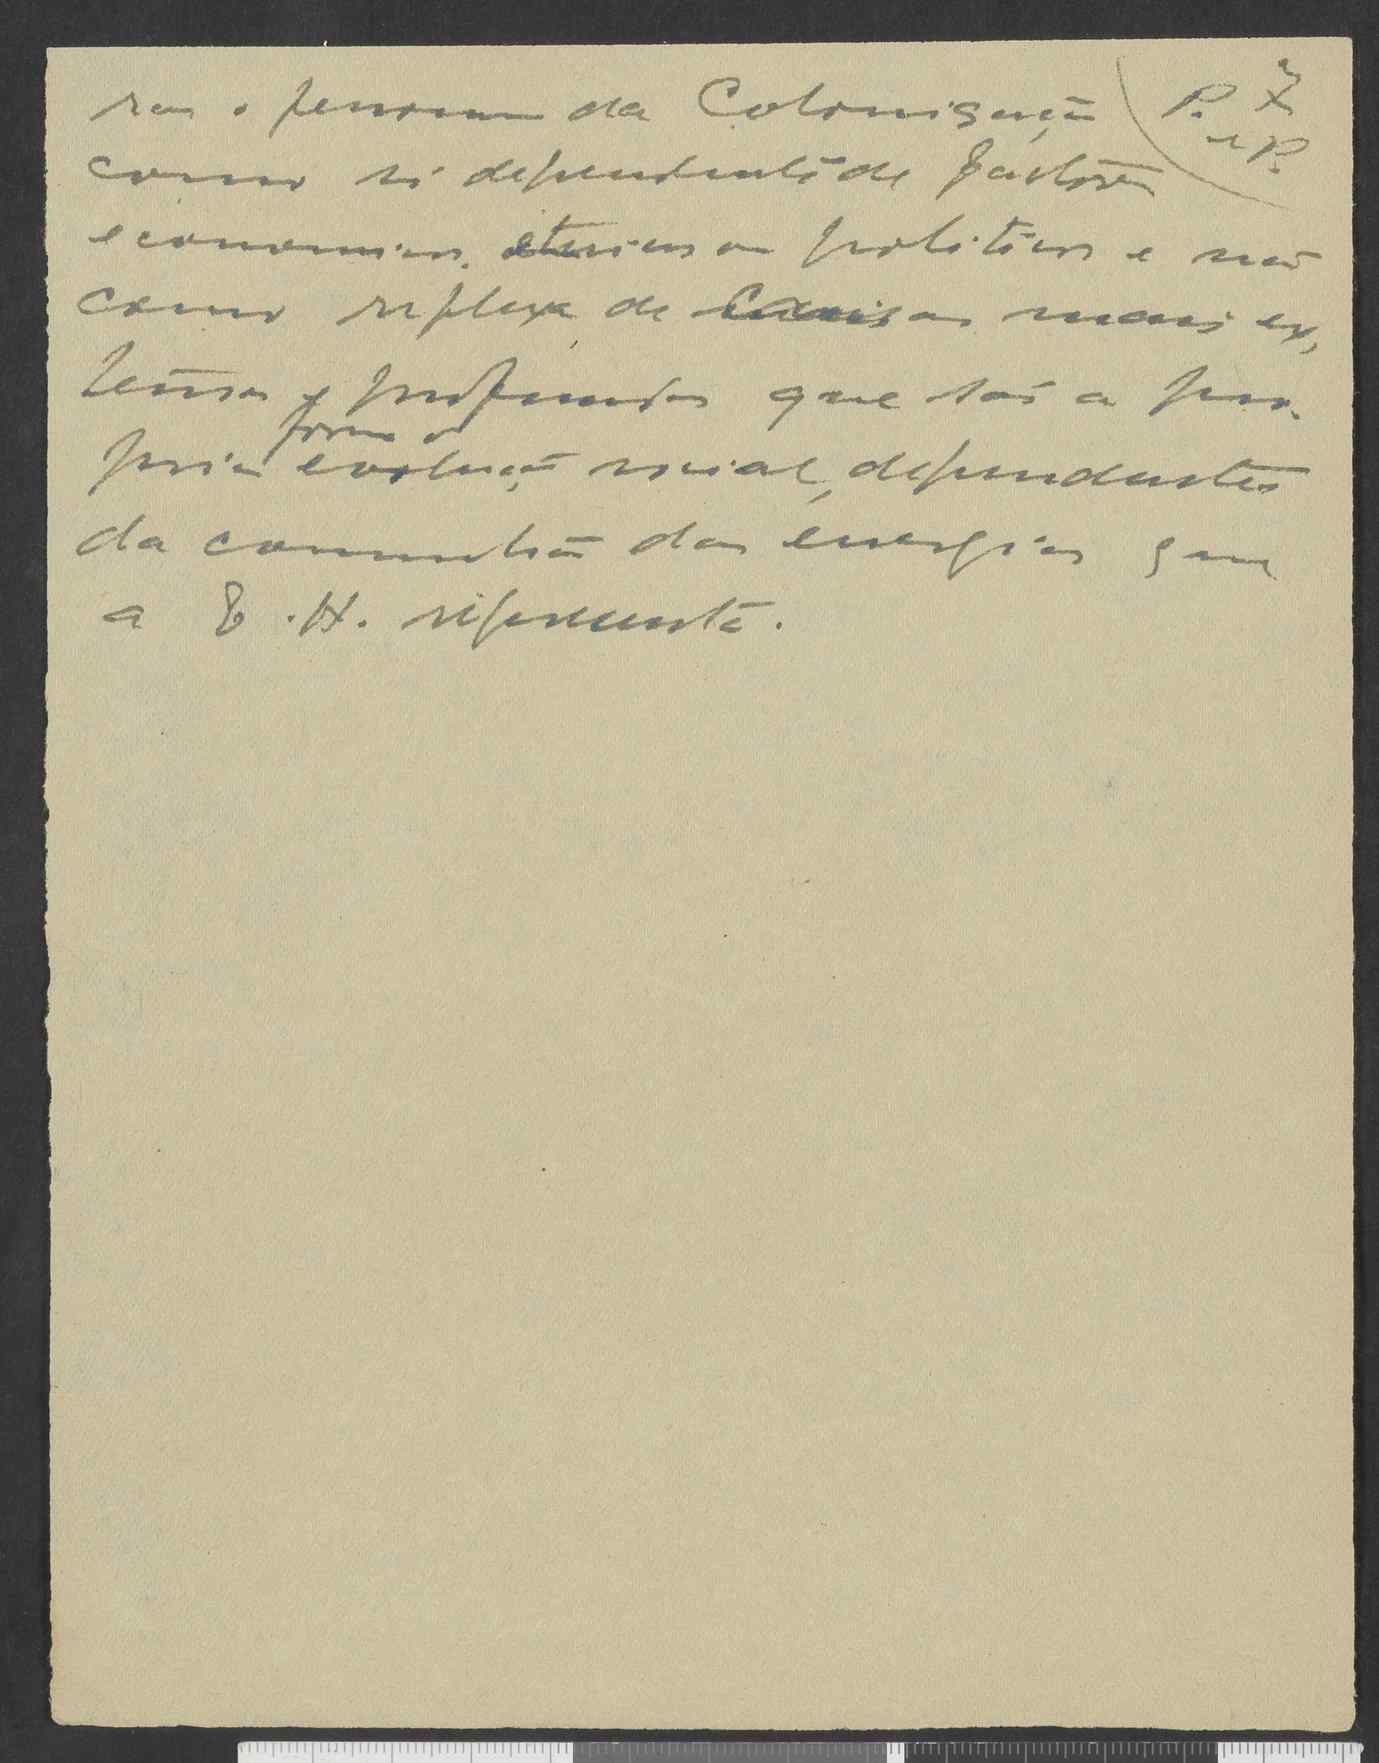 rar o fenomeno da Colonisação
como si dependente de factores
economicos, etnicos ou politicos e não
como reflexo de causas mais ex,
tensas e profundas que são a pro-
pria forma da evolução social, dependentes
da comunhão das energias que
a E. H. representa.
P. e P.